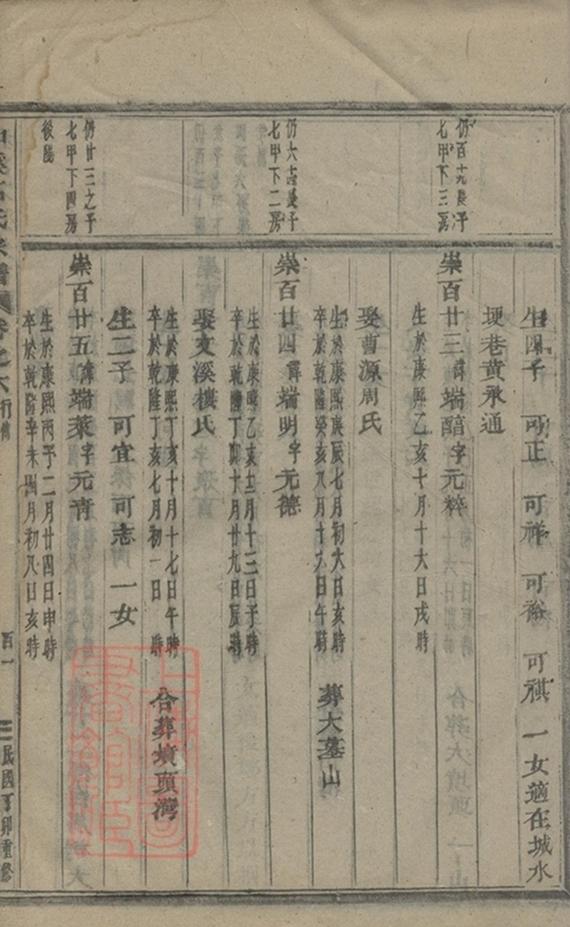 生四子　可正　可祥　可裕　可祺　一女適在城水
埂巷黄承通
仍百十九長子
七甲下三房
崇百廿三諱端醇字元粹
生於康熙乙亥十月十六日戌時
娶曹源周氏
生於康熙庚辰七月初六日亥時
卒於乾隆癸亥八月十六日午時
葬大墓山
七甲下二房
崇百廿四諱端明字元德
生於康熙乙亥十二月十三日子時
卒於乾隆丁卯十月廿九日辰時
娶文溪樓氏
生於康熙丁亥十月十七日午時
卒於乾隆丁亥七月初一日　時
合葬墳頭灣
生二子　可宜　可志　一女
仍廿三之子
七甲下四房
後陽
崇百廿五諱端萊字元青
生於康熙丙子二月廿四日申時
卒於乾隆辛未四月初八日亥時
氏宗譜
卷之六行傳
百一
民國丁卯重修